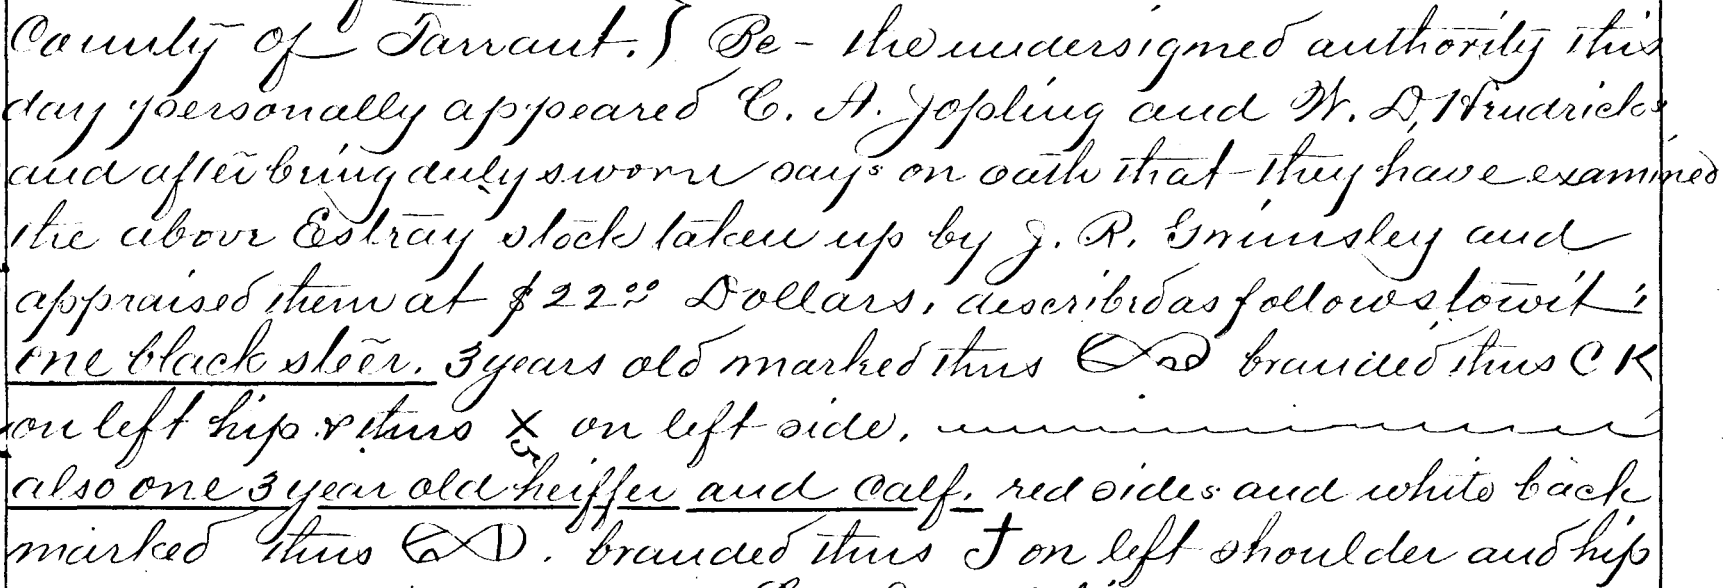 County of Tarrant.} Be - the undersigned authority this
day personally appeared C. A. Jopling and W. D. Hendricks
and after being duly sworn says on oath that they have examined
the above Estray stock taken up by J. R. Grimsley and
appraised them at $22.00 Dollars, described as follows towit:
one black steer. 3 years old marked thus branded thus C K
on left hip & thus X on left side.
also one 3 year old heiffer and calf. red sides and white back
marked thus . branded thus J on left shoulder and hip